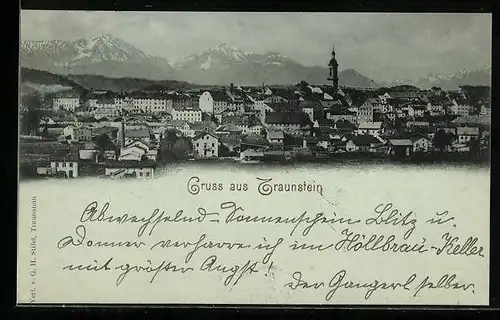 Gruss aus Traunstein
Abwechselnd - Sonnenschein Blitz u.
Donner verharre ich im Höllbräu-Keller
mit größter Angst!
Der Gangerl selber.
Verl. v. G. H. Stifel, Traunstein